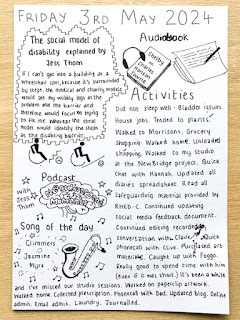 FRIDAY 3RD MAY 2024
The social model of
disability explained by
Jess Thom
If I can't get into a building as a
wheelchair user, because it's surrounded
by steps, the medical and charity models
would see my wobbly legs as the
problem and the barrier and
therefore would focus on trying
to fix me. Whereas the social
model would identify the steps
as the disabling barrier.
Audiobook
Activities
Did not sleep well - Bladder issues.
House jobs. Tended to plants.
Walked to Morrisons. Grocery
Shopping. Walked home. Unloaded
Shopping. Walked to my studio
at the NewBridge project. Quick
chat with Hannah. Updated all
diaries spreadsheet. Read all
safeguarding material provided by
RHED-C. Continued updating
social media feedback document.
Continued editing recorded
conversation with Claire. Quick
phonecall with Clive. Purchased art
materials. Caught up with Foggo.
Really good to spend time with him
(even if it was short). It's been a while
and I've missed our studio sessions. Worked on paperclip artwork.
Walked home. Collected prescription. Phonecall with Dad. Updated blog. Online
admin. Email admin. Laundry. Journalled.
Podcast
With Jess
Thom
Song of the day
Glimmers
by
Jasmine
Myra